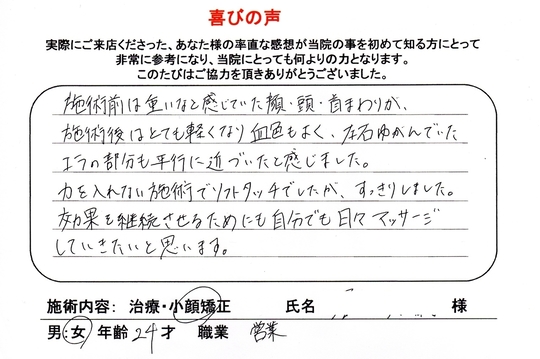 喜びの声
実際にご来店くださった、あなた様の率直な感想が当院の事を初めて知る方にとって
非常に参考になり、当院にとっても何よりの力となります。
このたびはご協力を頂きありがとうございました。
施術前は重いなと感じていた顔・頭・首まわりが、
施術後はとても軽くなり血色もよく、左右ゆがんでいた
エラの部分も平行に近づいたと感じました。
力を入れない施術でソフトタッチでしたが、すっきりしました。
効果を継続させるためにも自分でも日々マッサージ
していきたいと思います。
施術内容: 治療・小顔矯正 氏名 様
男:女 年齢 24才 職業 営業